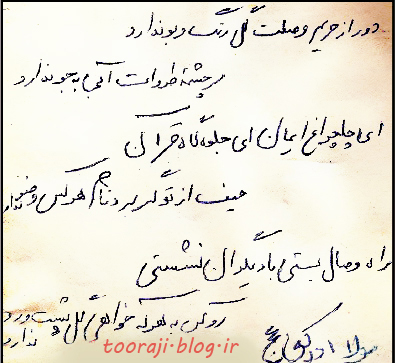 دور از حریم وصلت گل رنگ و بو ندارد
سرچشمهٔ طراوت آبی به جو ندارد
ای چلچراغ ایمان ای جلوگاه قرآن
حیف از تو گر برد نام هر کس وضو ندارد
راه وصال بستی با دیگران نشستی
رو کن به هر که خواهی گل پشت و رو ندارد
مولا
tooraji.blog.ir